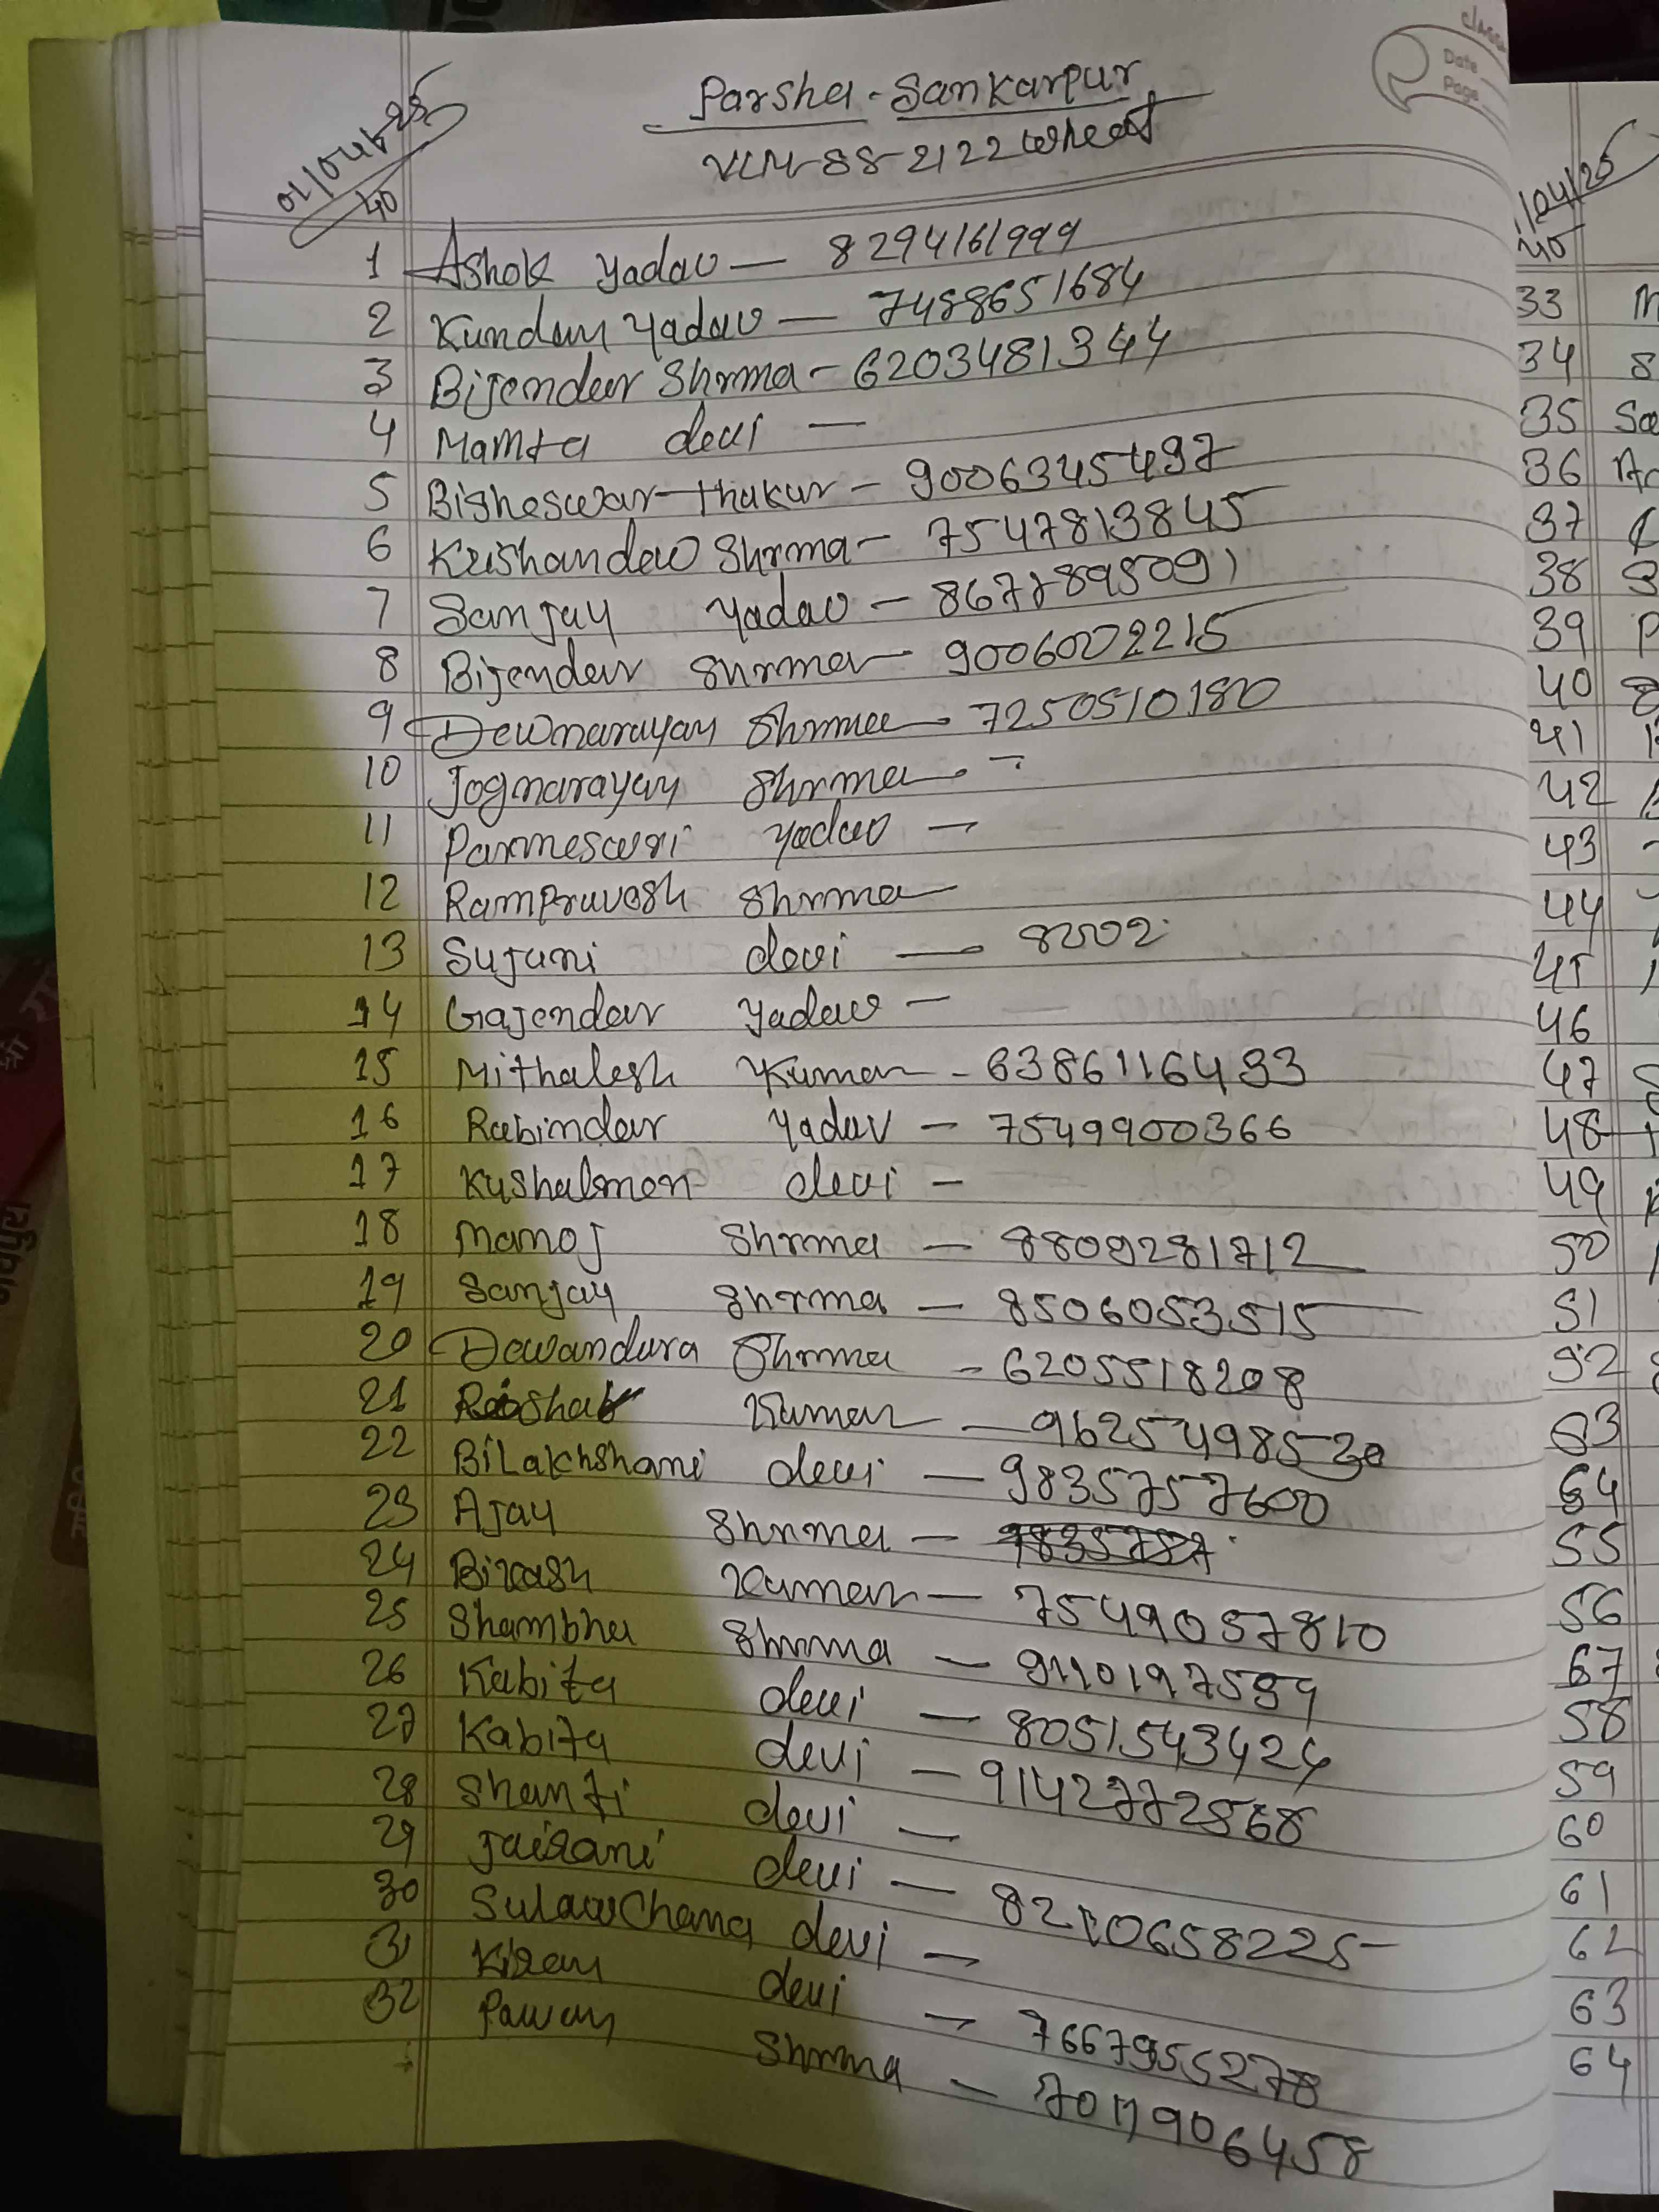 Parsha - Sankarpur
VLM-SS-2122 wheat
01/04/25
40
1 Ashok Yadav — 8294161999
2 Kundan Yadav — 7488651684
3 Bijender Shrma - 6203481344
4 Mamta devi —
5 Bisheswar thakur - 9006345497
6 Krishandew Shrma - 7547813845
7 Sanjay Yadav - 8677895091
8 Bijendar Shrma - 9006002215
9 Dewnarayan Shrma - 7250510180
10 Jognarayan Shrma -
11 Parmeswri Yadav —
12 Rampravesh Shrma —
13 Sujani devi — 8002
14 Gajendar Yadav —
15 Mithalesh Kumar - 6386116493
16 Rabindar Yadav - 7549900366
17 Kushalmon devi -
18 Manoj Shrma — 8809281712
19 Sanjay Shrma — 8506053515
20 Dewandura Shrma - 6205518208
21 Kumar — 9625498530
22 Bilakhshani devi — 9835757600
23 Ajay Shrma —
24 Bikash Kumar — 7549057810
25 Shambhu Shrma — 9110197599
26 Kabita devi — 8051543424
27 Kabita devi — 9142772568
28 Shanti devi —
29 Jairani devi — 8210658225
30 Sulawchana devi —
31 Kiran devi — 7667955278
32 Pawan Shrma —
Date
Page
/04/25
40
33
34
35 Sa
36
37
38
39 P
40
41
42
43
44
45
46
47
48
49
50
51
52
53
54
55
56
57
58
59
60
61
62
63
64